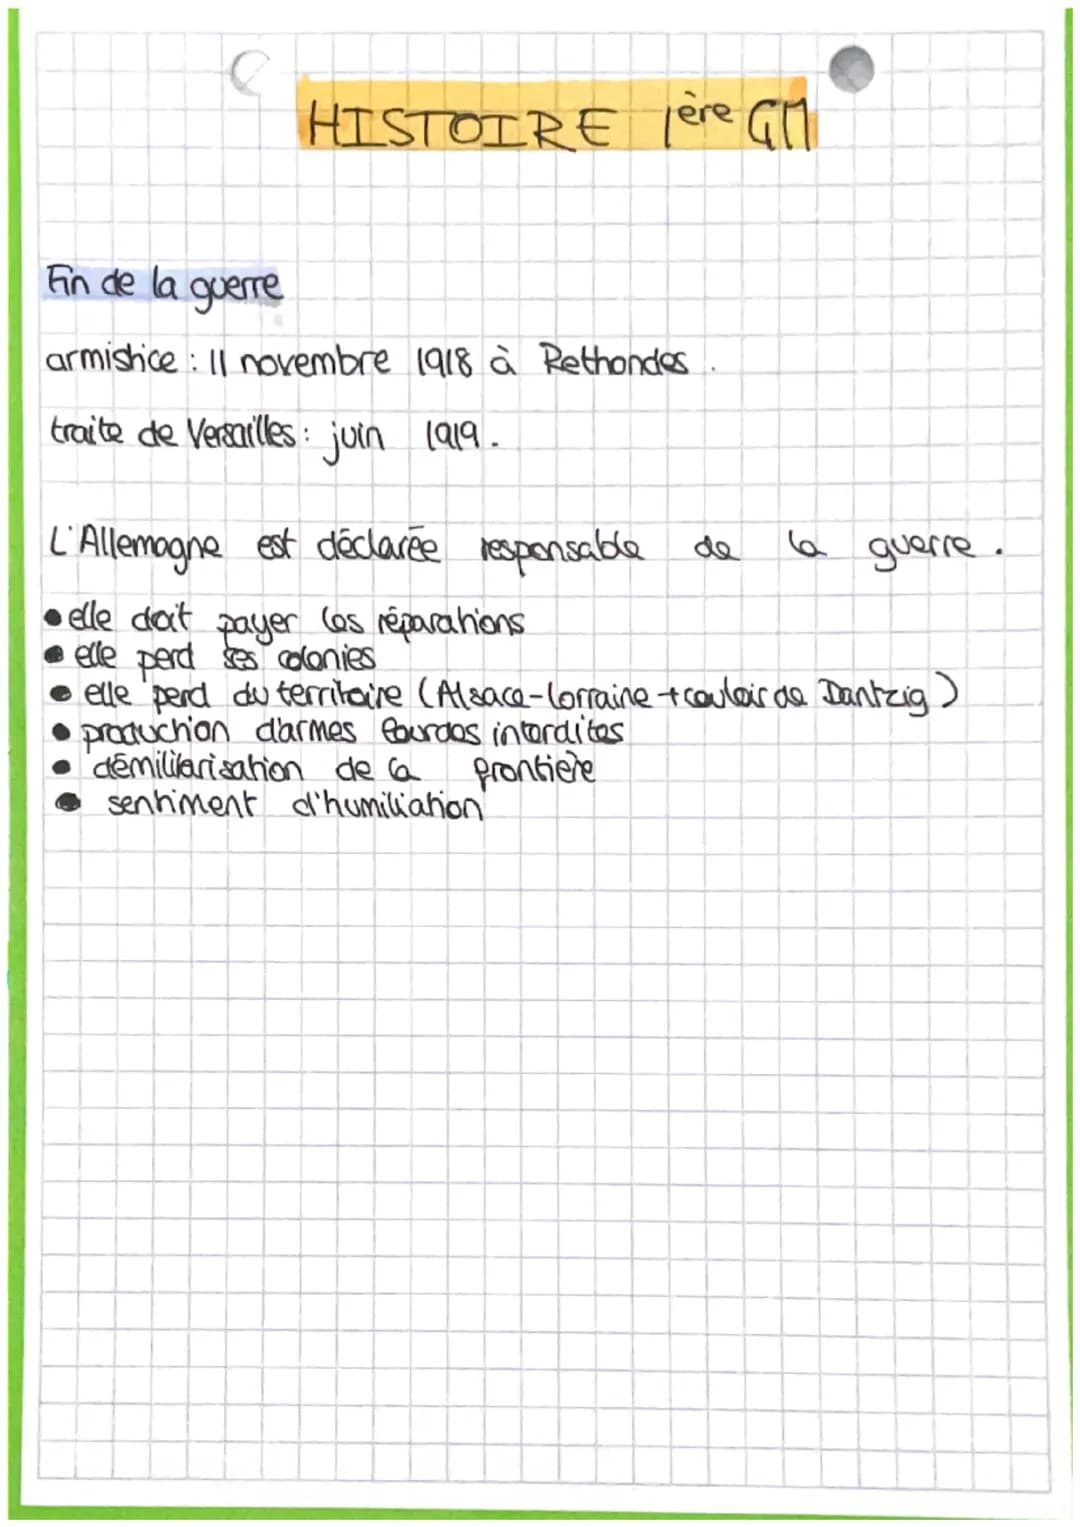 HISTOIRE 1ère GM
Fin de la guerre
armistice : 11 novembre 1918 à Rethondes.
traite de Versailles : juin 1919.
L'Allemagne est déclarée responsable de la guerre.
• elle doit payer les réparations
• elle perd ses colonies
• elle perd du territoire (Alsace-Lorraine + couloir de Dantzig)
• production d'armes lourdes interdites
• démilitarisation de la frontière
• sentiment d'humiliation